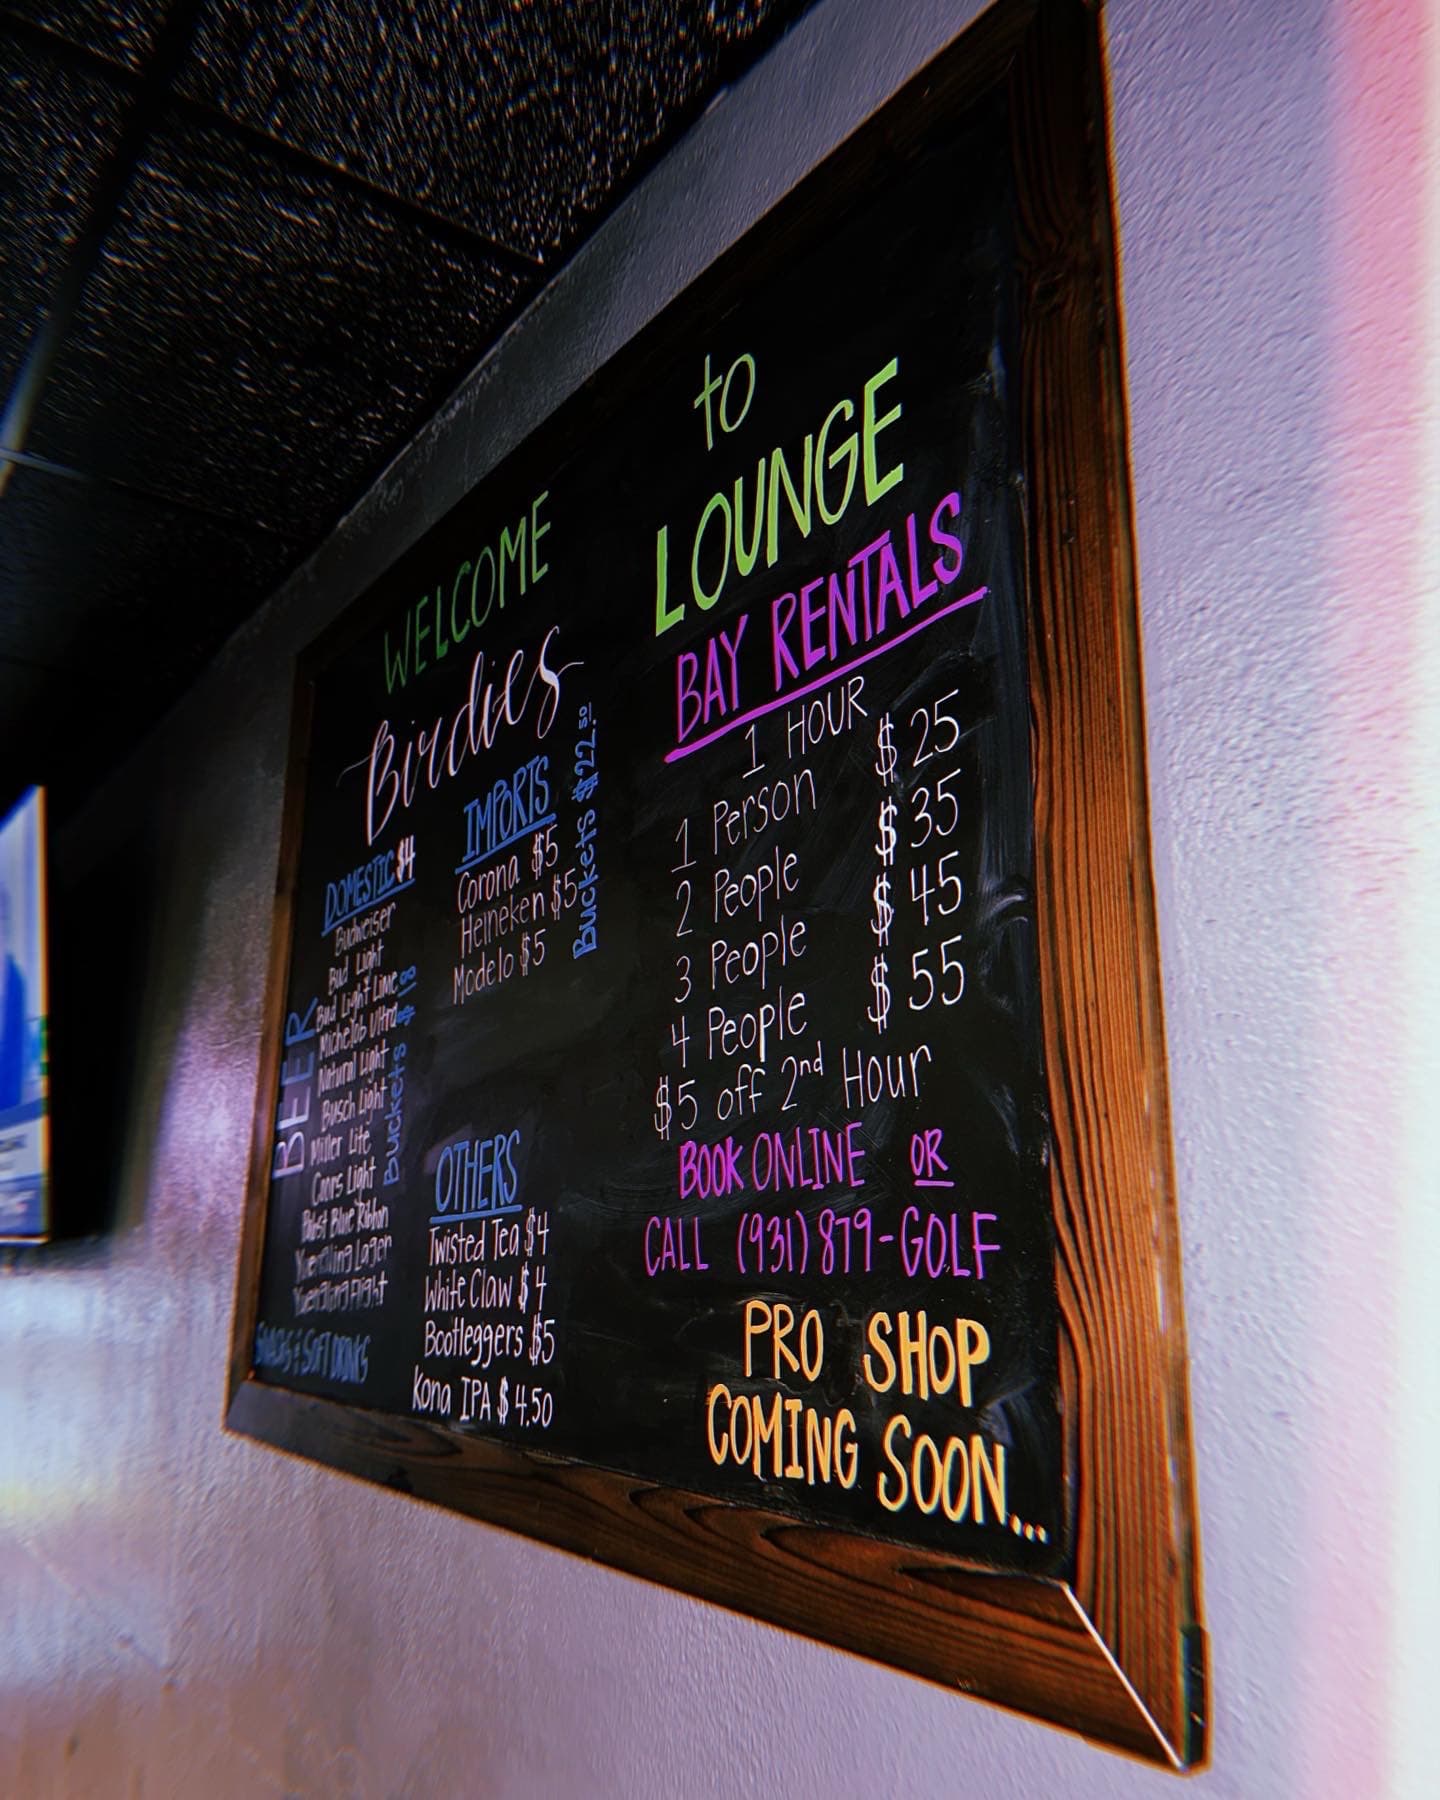 WELCOME to
Birdies LOUNGE
BEER
DOMESTIC $4
Budweiser
Bud Light
Bud Light Lime
Michelob Ultra
Natural Light
Busch Light
Miller Lite
Coors Light
Pabst Blue Ribbon
Yuengling Lager
Yuengling Flight
Buckets $18
SNACKS & SOFT DRINKS
IMPORTS
Corona $5
Heineken $5
Modelo $5
Buckets $22.50
OTHERS
Twisted Tea $4
White Claw $4
Bootleggers $5
Kona IPA $4.50
BAY RENTALS
1 HOUR
1 Person $25
2 People $35
3 People $45
4 People $55
$5 off 2nd Hour
BOOK ONLINE OR
CALL (931)879-GOLF
PRO SHOP
COMING SOON...